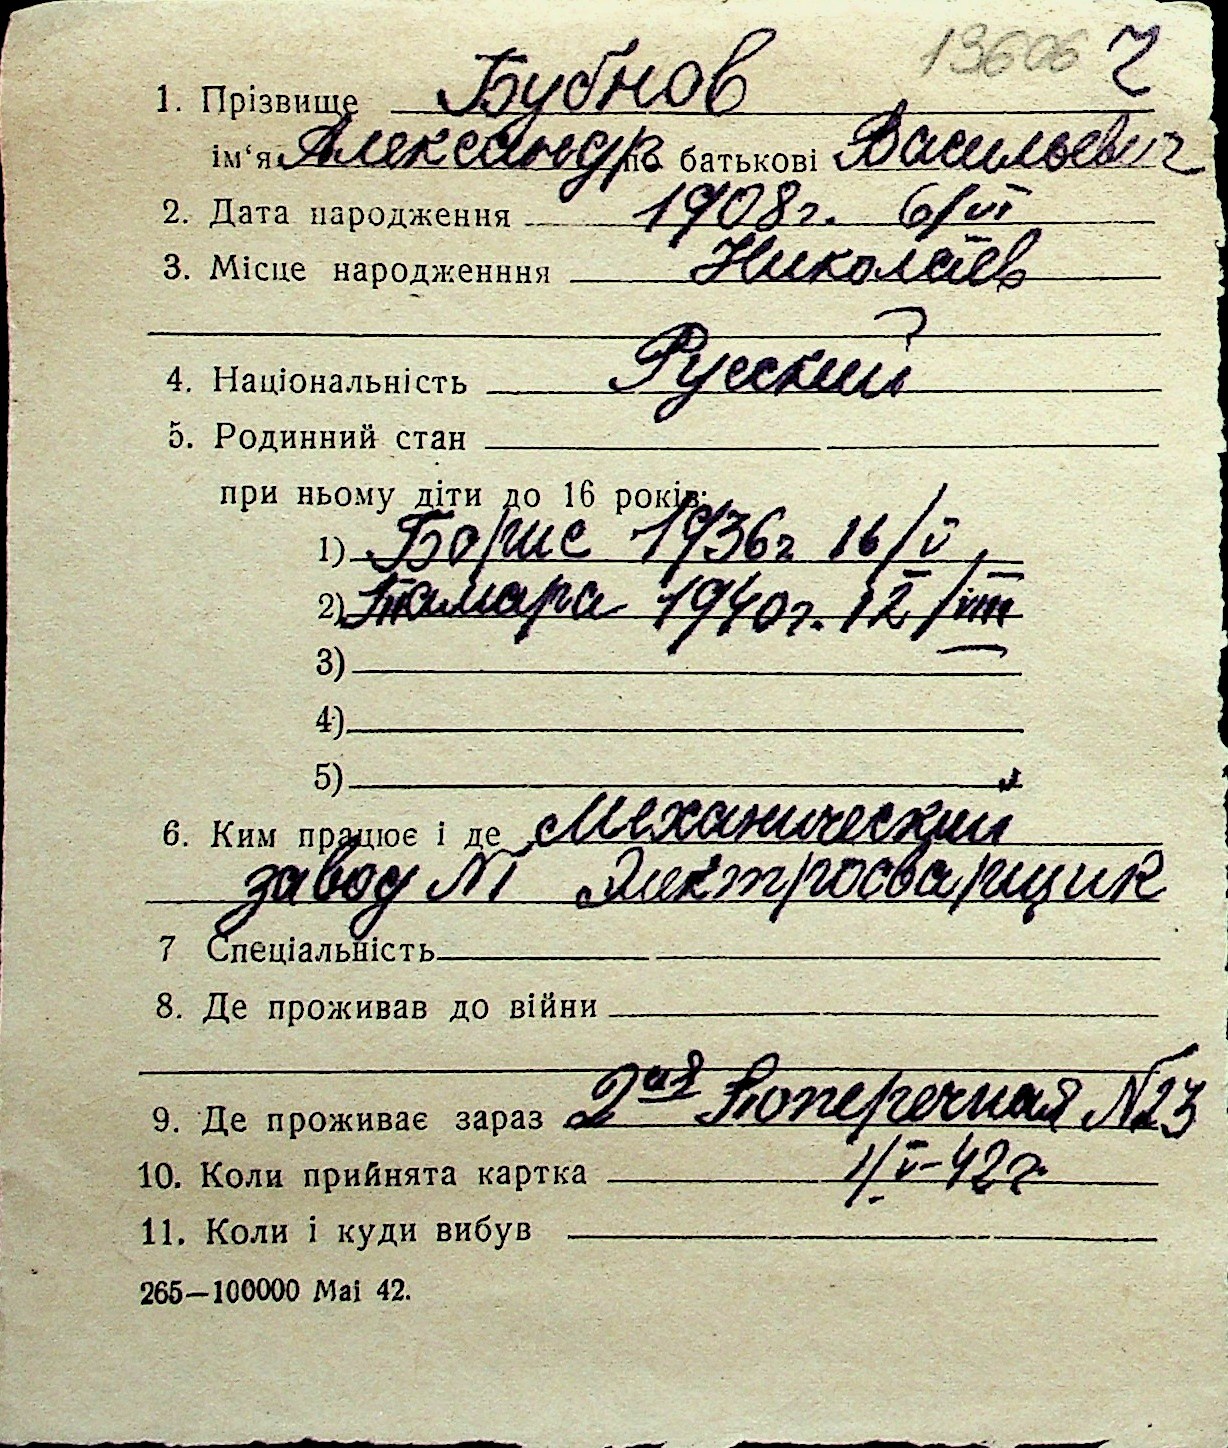 13606 Ч
1. Прізвище Бубнов
ім‘я Александр по батькові Васильевич
2. Дата народження 1908г. 6/VI
3. Місце народженння Николаев
4. Національність Русский
5. Родинний стан
при ньому діти до 16 років:
1) Борис 1936г 16/V
2) Тамара 1940г. 12/VIII
3)
4)
5)
6. Ким працює і де Механический
завод №1 Электросварщик
7 Спеціальність
8. Де проживав до війни
9. Де проживає зараз 2ая Поперечная №23
10. Коли прийнята картка 1/V-42г
11. Коли і куди вибув
265—100000 Маі 42.